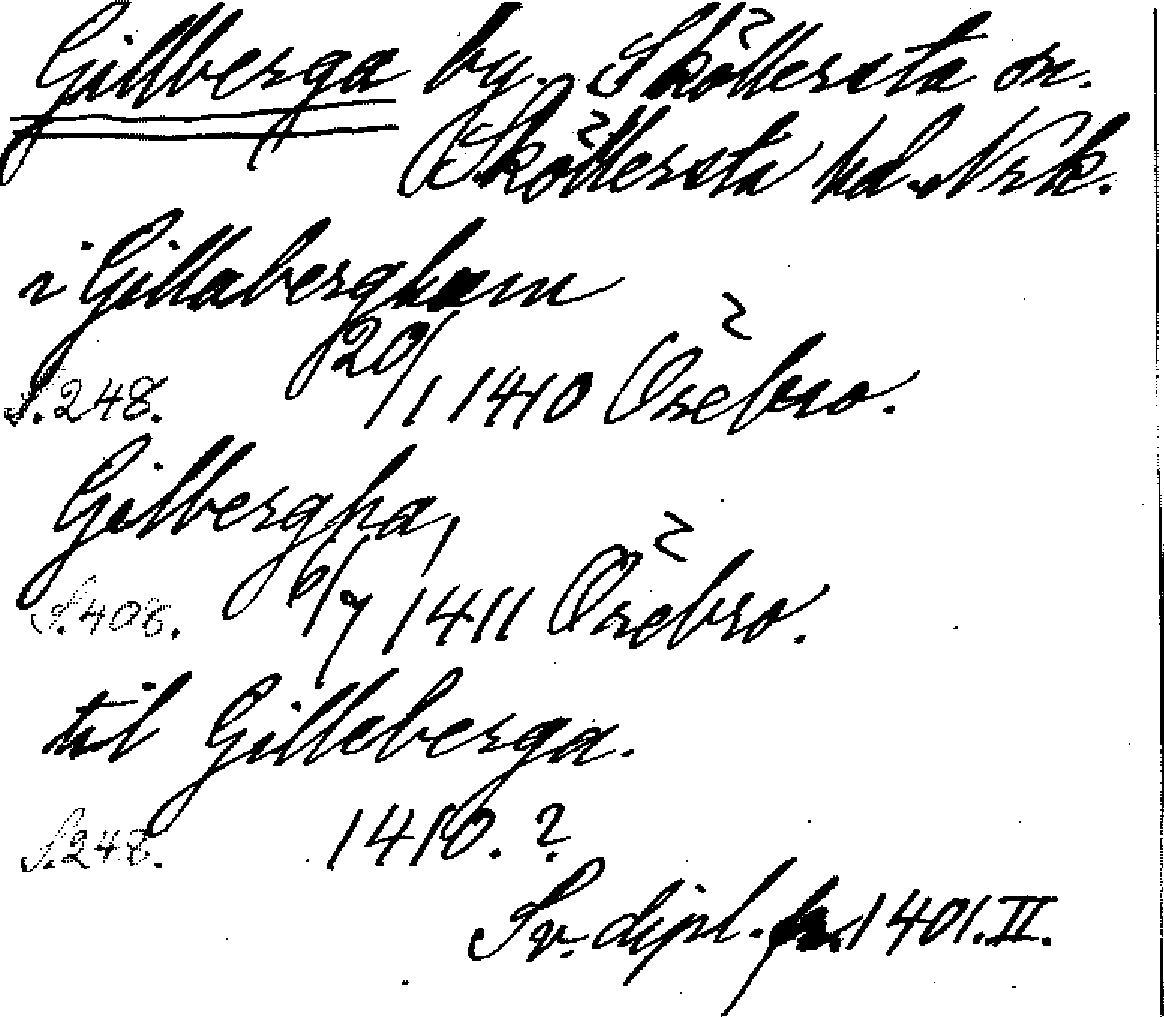 Gillberga by. Sköllersta sn.
Sköllersta hd. Nrk.
i Gillabergham
S. 248. 20/1 1410 Örebro.
Gilbergha,
S. 408. 6/7 1411 Örebro.
til Gilleberga.
S. 248. 1410. ?
Sv. dipl. fr. 1401. II.